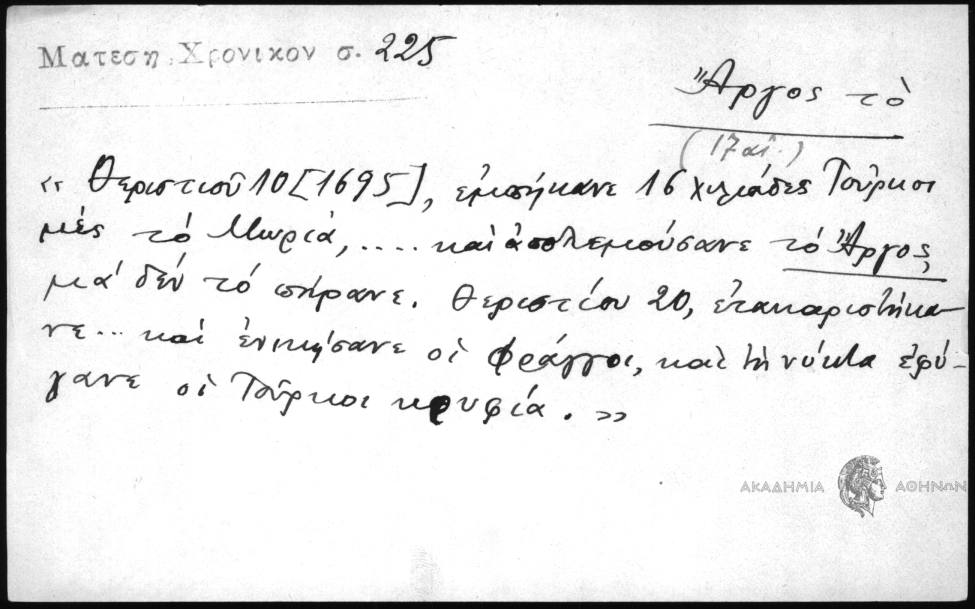 Ματεση Χρονικον σ. 225
Ἄργος τὸ
(17 αἰ.)
« Θεριστιοῦ 10 [1695], ἐμπήκανε 16 χιλιάδες Τοῦρκοι
μὲς τὸ Μωριά, .... καὶ ἀπολεμούσανε τὸ Ἄργος,
μὰ δὲν τὸ πήρανε. Θεριστίου 20, ἐτακαριστήκα-
νε... καὶ ἐνικήσανε οἱ Φράγγοι, καὶ τὴ νύκτα ἐφύ-
γανε οἱ Τοῦρκοι κρυφία. »
ΑΚΑΔΗΜΙΑ ΑΘΗΝΩΝ